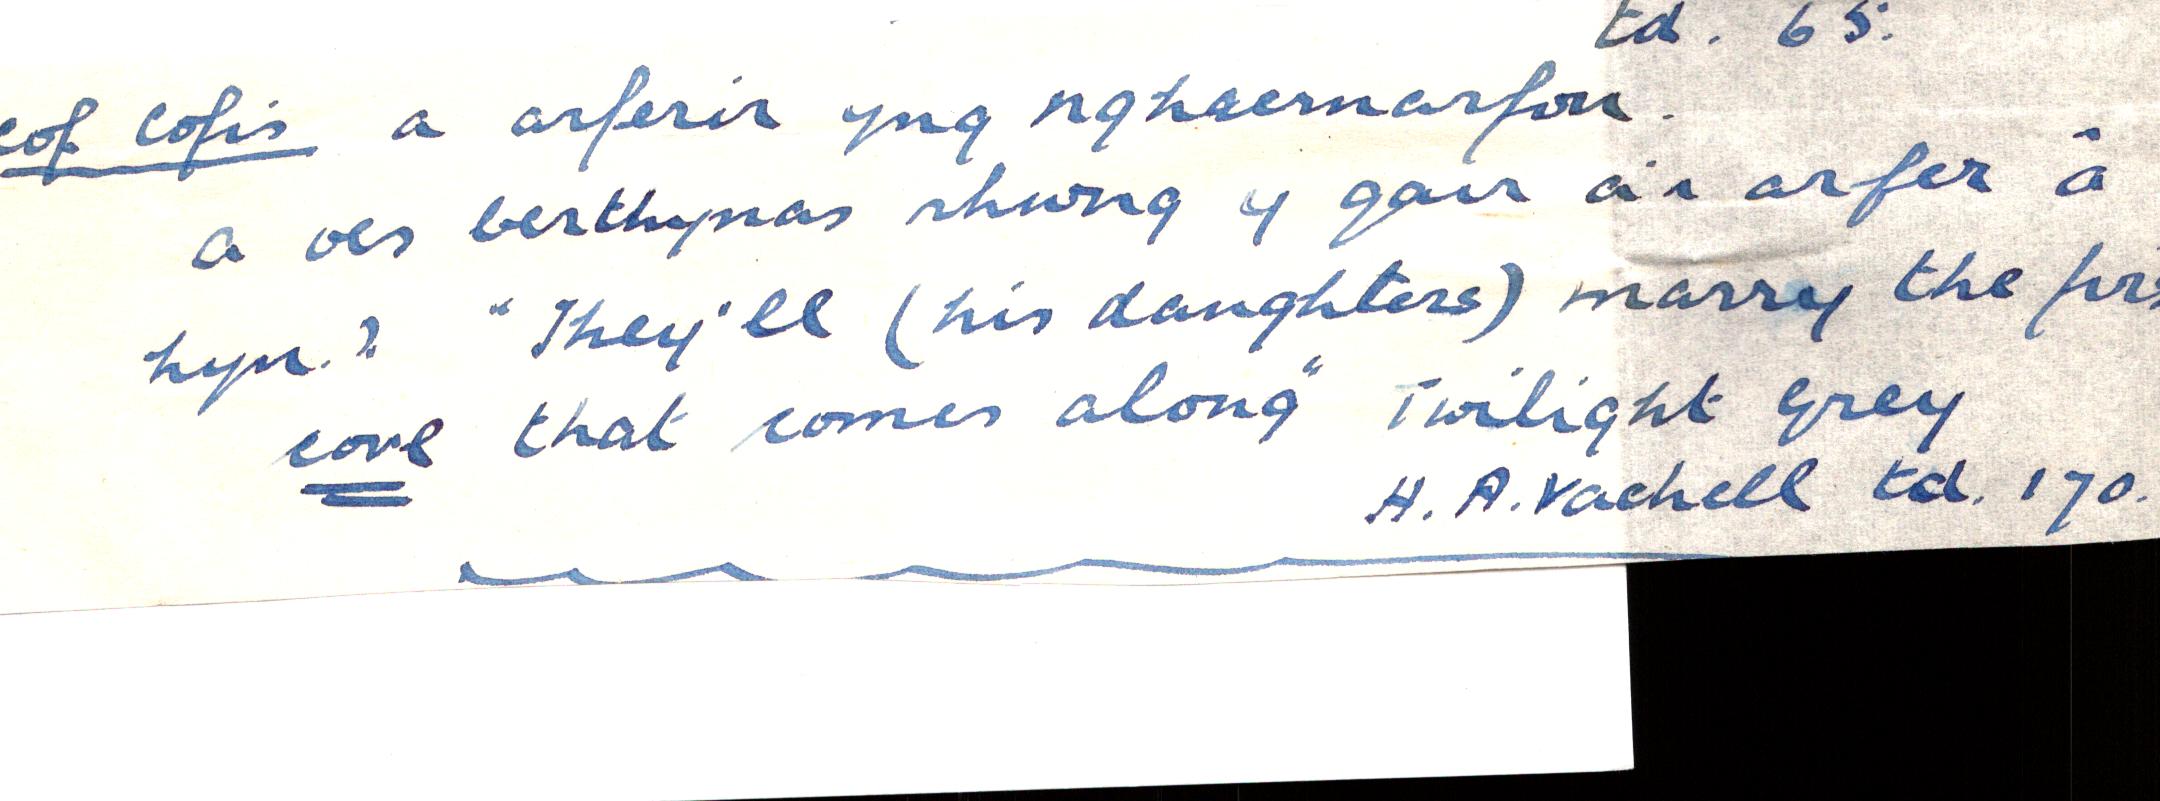 td. 65.
cof Cofis a arferir yng nghaernarfon.
a oes berthynas rhwng y gair a'i arfer â
hyn? "They'll (his daughters) marry the
cove that comes along" Twilight Grey
H. A. Vachell td. 170.